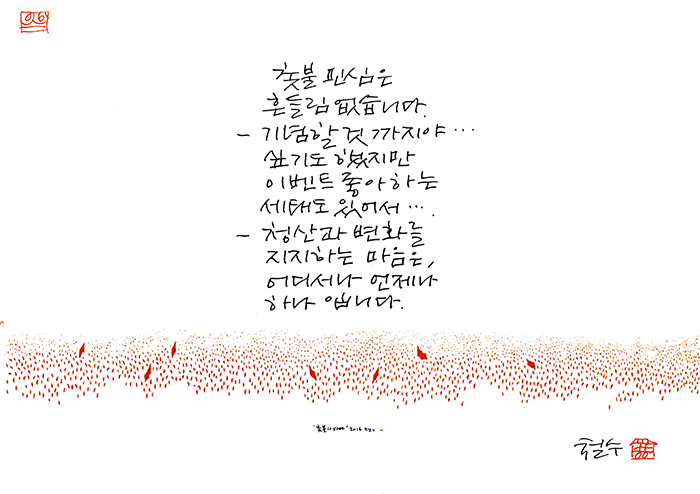 촛불 민심은
흔들림 없습니다.
- 기념할 것 까지야…
싶기도 했지만
이벤트 좋아하는
세태도 있어서….
- 청산과 변화를
지지하는 마음은,
어디서나 언제나
하나 입니다.
"촛불의 바다" 2016
철수